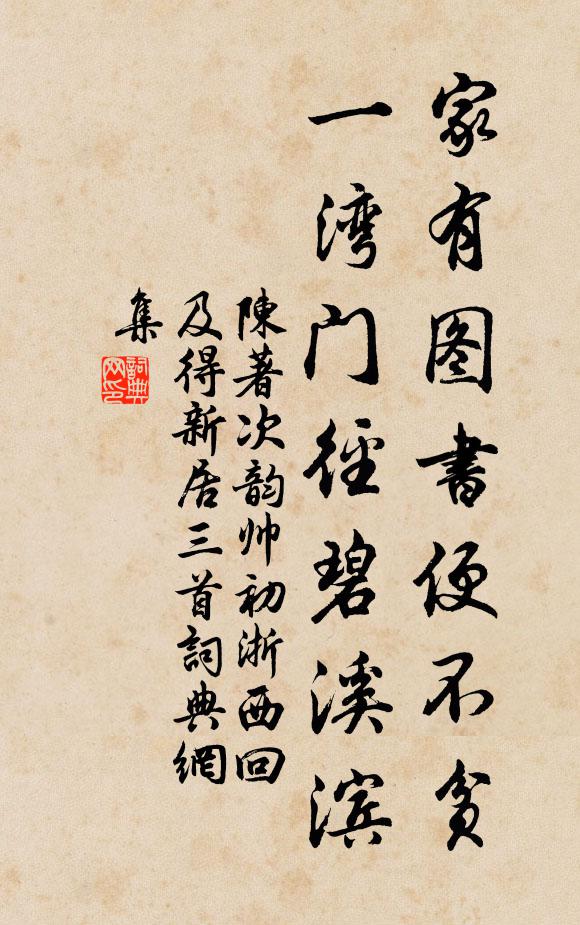 家有图書便不貧
一湾門徑碧溪滨
陳著次韵帅初浙西回
及得新居三首詞典網
集
詞典
网印